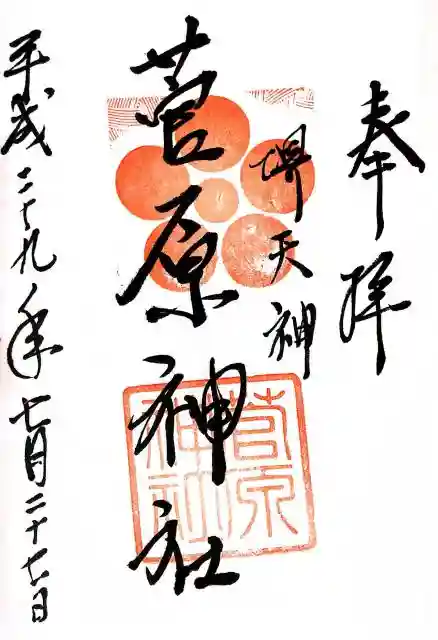 奉拝
堺天神
菅原神社
菅原神社
平成二十九年七月二十七日